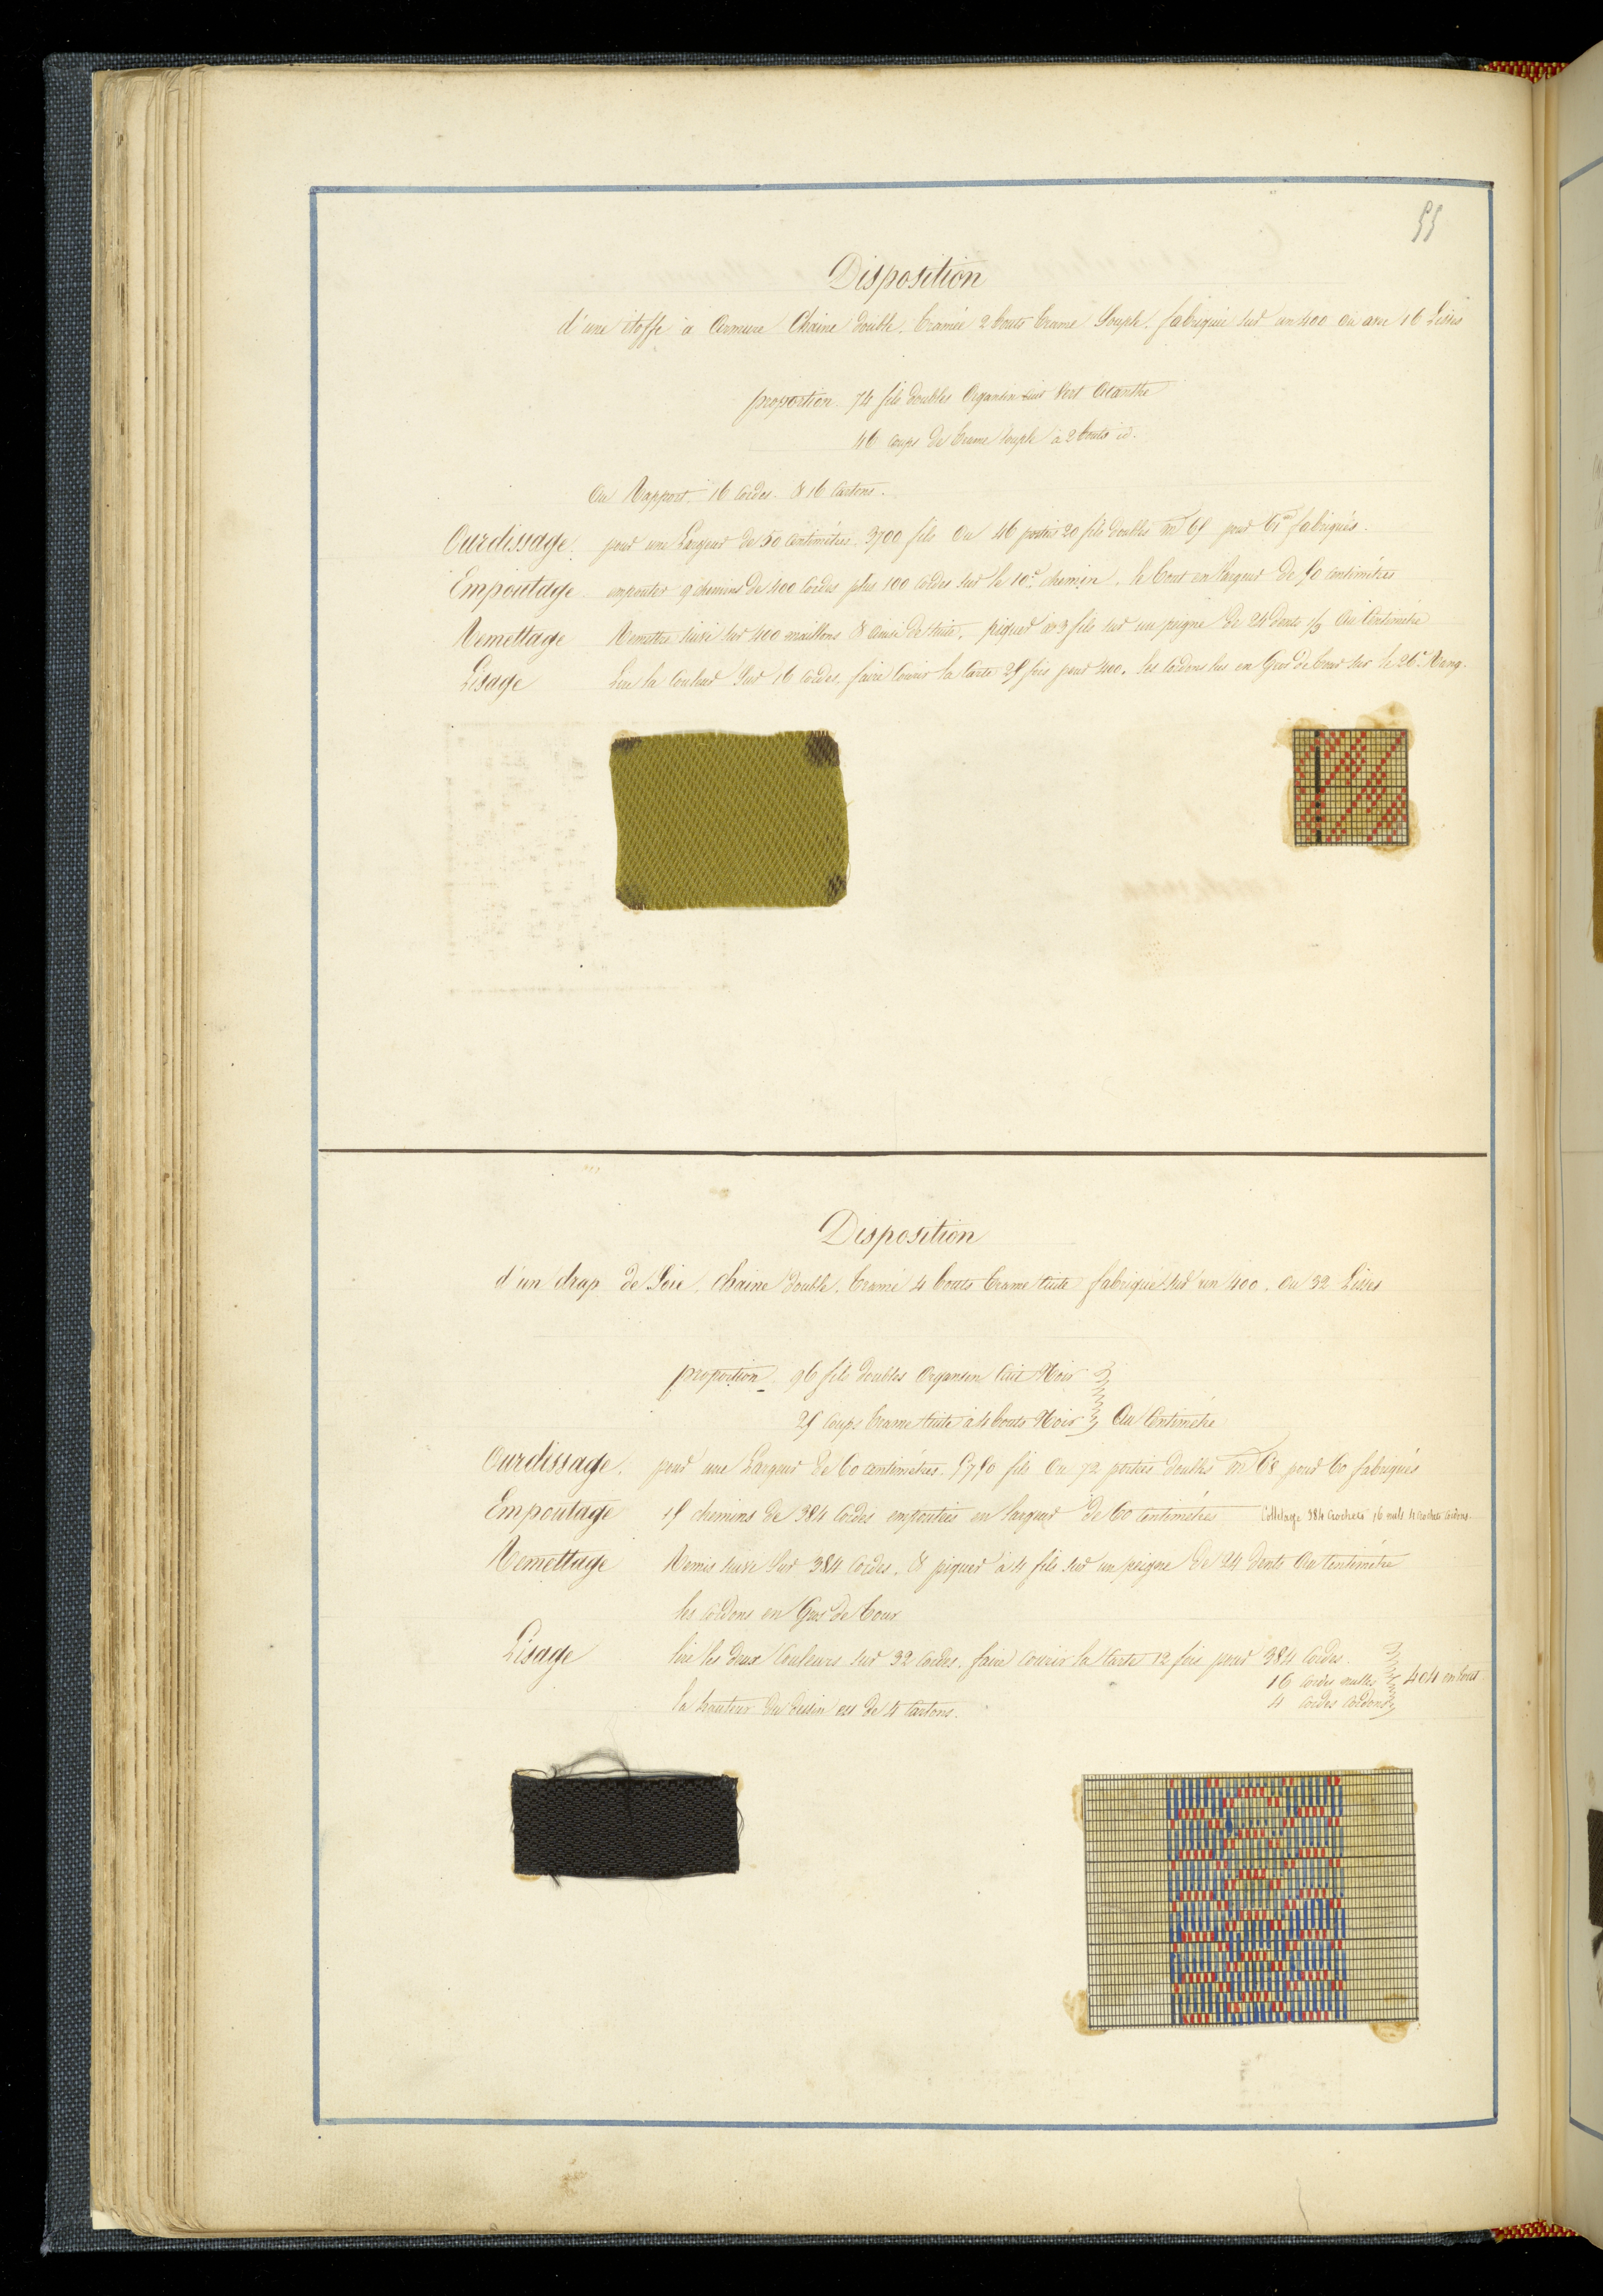 55
Disposition
d'une étoffe à Armure Chaine double. tramée 2 bouts trame Souple. fabriquée sur un 400 ou avec 16 Lisses
proportion. 74 fils doubles Organsin cuit Vert Acanthe
46 coups de trame souple à 2 bouts id.
Au Rapport. 16 Cordes. & 16 Cartons.
Ourdissage. pour une Largeur de 50 centimètres. 3700 fils ou 46 portées 20 fils doubles m 65 pour 61 m fabriqués.
Empoutage empouter 9 chemins de 400 Cordes plus 100 Cordes sur le 10e chemin. le tout en largeur de 50 centimètres
Remettage Remettre suivi sur 400 maillons & ainsi de suite. piquer à 3 fils sur un peigne de 24 dents 2/3 au Centimètre
Lisage Lire la Couleur sur 16 Cordes, faire courir la Carte 25 fois pour 400. les Cordons lus en Gros de tour sur le 26e Rang.
Disposition
d'un drap de Soie. Chaine double. tramé 4 bouts trame cuite fabriqué sur un 400. ou 32 Lisses
proportion 96 fils doubles Organsin cuit Noir
25 coups trame cuite à 4 bouts Noir au Centimètre
Ourdissage. pour une Largeur de 60 centimètres. 5750 fils ou 72 portées doubles m 68 pour 60 fabriqués
Empoutage 15 chemins de 384 Cordes empoutées en largeur de 60 Centimètres Colletage 384 Crochets 16 nuls 4 crochets cordons.
Remettage Remis suivi sur 384 Cordes. & piquer à 4 fils sur un peigne de 24 dents au Centimètre
les cordons en Gros de tour
Lisage lire les deux Couleurs sur 32 Cordes. faire courir la Carte 12 fois pour 384 Cordes.
16 Cordes nulles 404 en tout.
4 Cordes Cordons
la hauteur du dessin est de 4 Cartons.